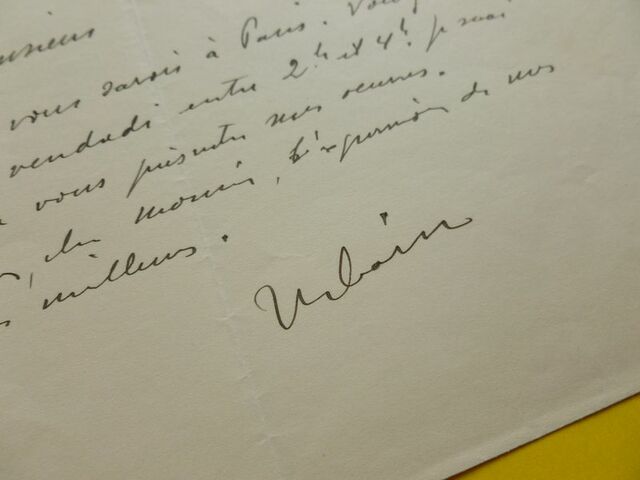 vous savois à Paris. Vou
vendredi entre 2h et 4h. je serai
vous présenter mes œuvres.
, cher monsieur, l'expression de mes
meilleurs.
Urbain